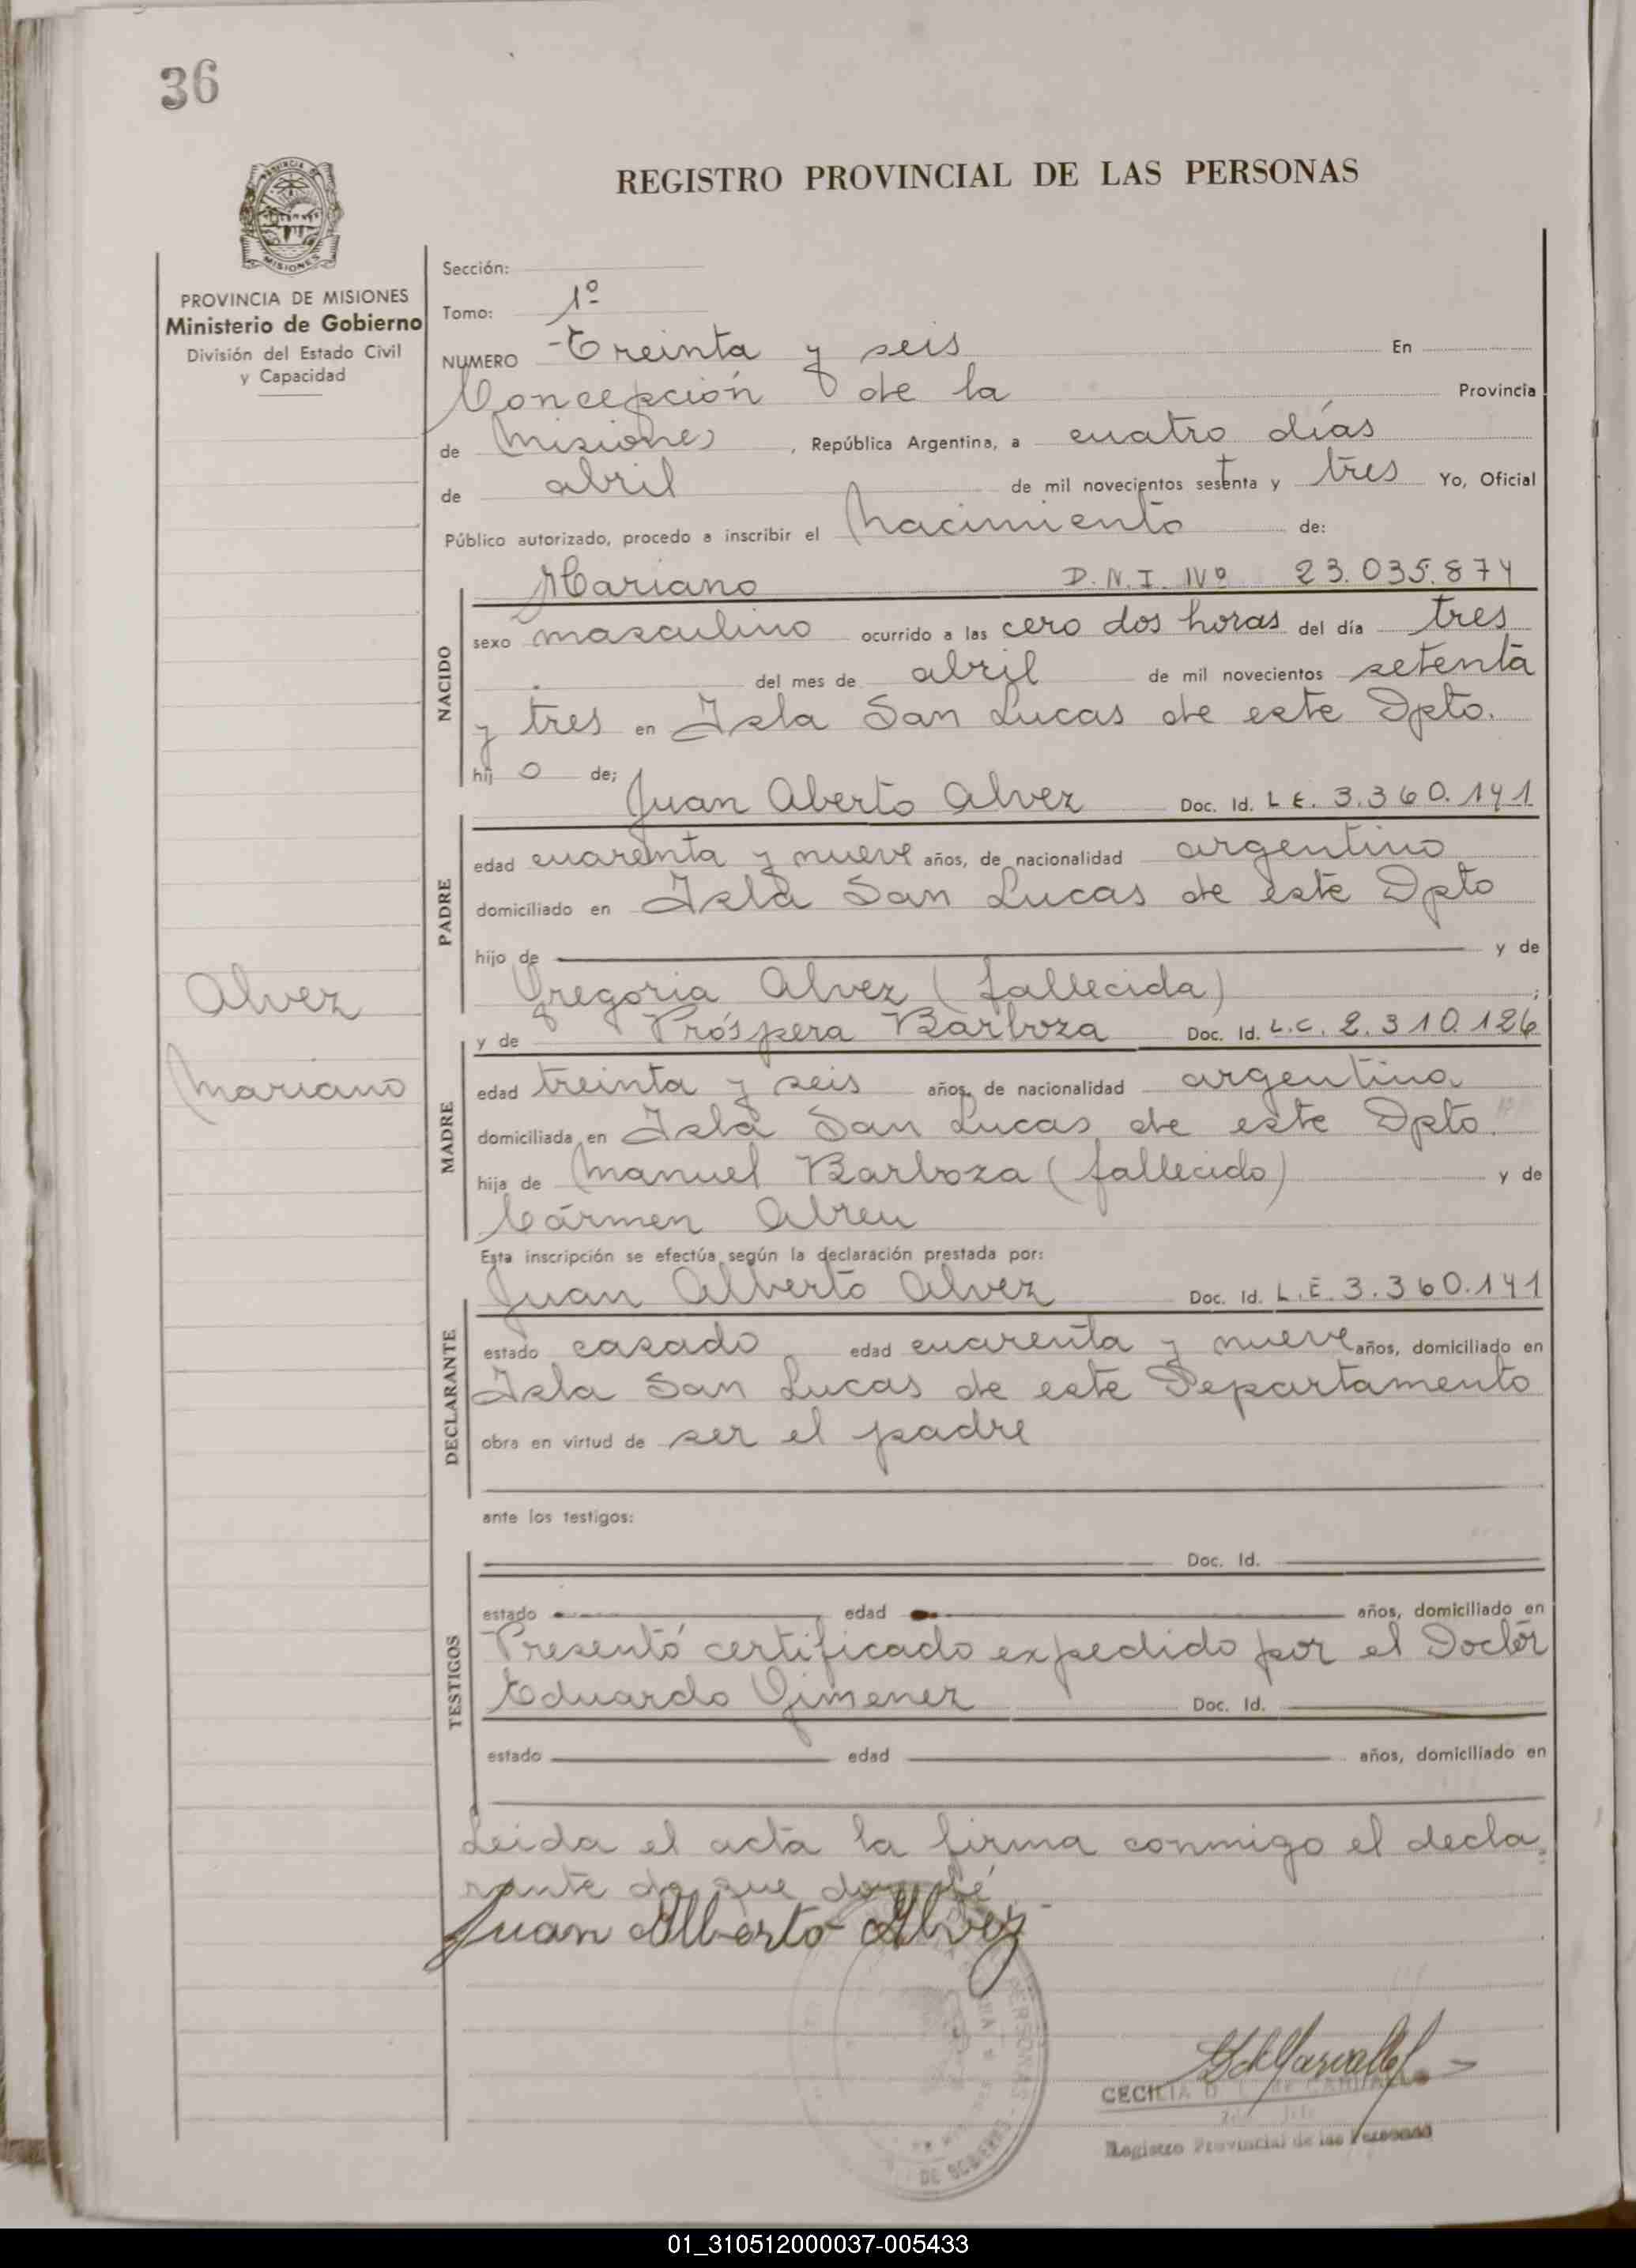 36
REGISTRO PROVINCIAL DE LAS PERSONAS
MISIONES
PROVINCIA DE MISIONES
Ministerio de Gobierno
División del Estado Civil
y Capacidad
Sección:
Tomo: 1º
NUMERO Treinta y seis En
Concepción de la Provincia
de Misiones, República Argentina, a cuatro días
de abril de mil novecientos setenta y tres Yo, Oficial
Público autorizado, procedo a inscribir el Nacimiento de:
NACIDO
Mariano D.N.I Nº 23.035.874
sexo masculino ocurrido a las cero dos horas del día tres
del mes de abril de mil novecientos setenta
y tres en Isla San Lucas de este Dpto.
hij o de;
PADRE
Juan Aberto Alvez Doc. Id. L E. 3.360.141
edad cuarenta y nueve años, de nacionalidad argentino
domiciliado en Isla San Lucas de este Dpto
hijo de y de
Gregoria Alvez (fallecida) ;
Alvez
Mariano
MADRE
y de Próspera Barboza Doc. Id. L.C. 2.310.126
edad treinta y seis años, de nacionalidad argentina
domiciliada en Isla San Lucas de este Dpto.
hija de Manuel Barboza (fallecido) y de
Cármen Abreu
Esta inscripción se efectúa según la declaración prestada por:
DECLARANTE
Juan Alberto Alvez Doc. Id. L.E. 3.360.141
estado casado edad cuarenta y nueve años, domiciliado en
Isla San Lucas de este Departamento
obra en virtud de ser el padre
ante los testigos:
TESTIGOS
Doc. Id.
estado edad años, domiciliado en
Presentó certificado expedido por el Doctor
Eduardo Gimenez Doc. Id.
estado edad años, domiciliado en
Leida el acta la firma conmigo el decla
rante de que doy fé
Juan Alberto Alvez
CECILIA D
Registro Provincial de las Personas
01_310512000037-005433